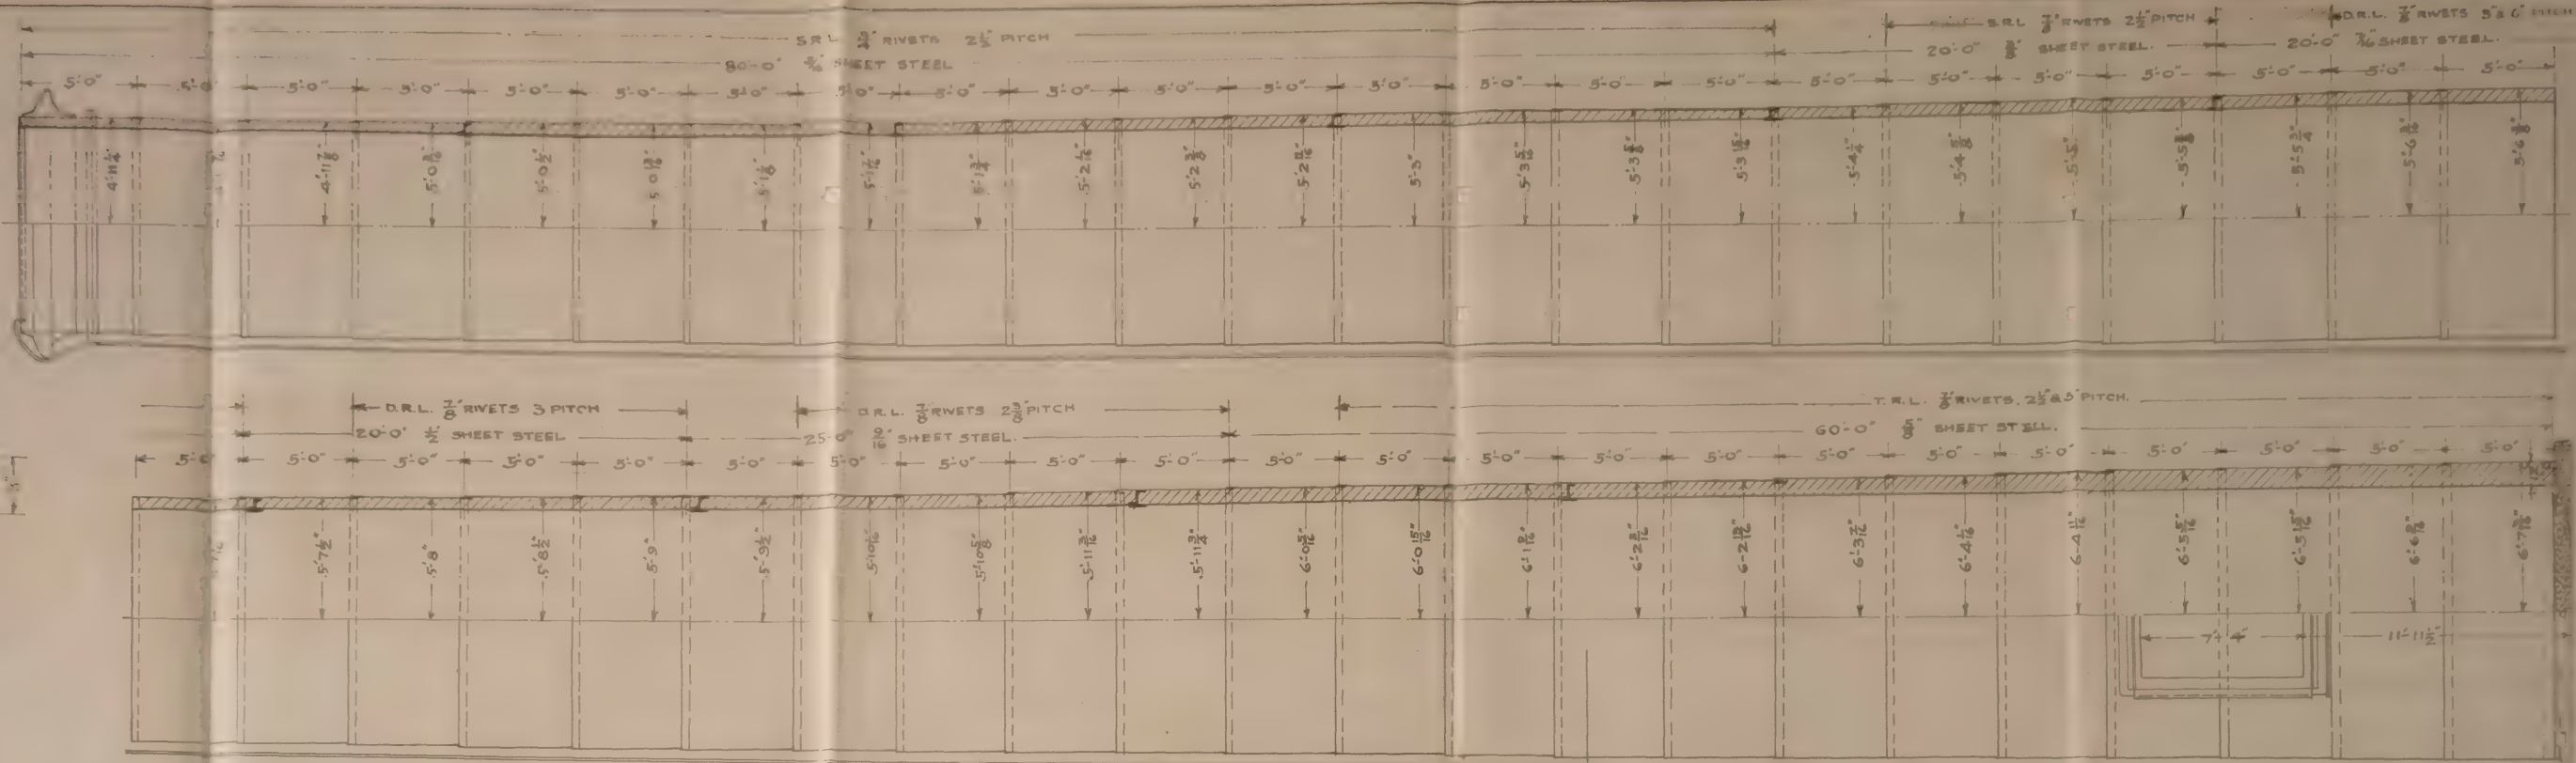 S.R.L. 3/4" RIVETS 2 1/2" PITCH
S.R.L. 7/8" RIVETS 2 1/2" PITCH
D.R.L. 7/8" RIVETS 3" & 6" PITCH
80'-0" 5/16" SHEET STEEL
20'-0" 3/8" SHEET STEEL.
20'-0" 7/16" SHEET STEEL.
5'-0" 5'-0" 5'-0" 5'-0" 5'-0" 5'-0" 5'-0" 5'-0" 5'-0" 5'-0" 5'-0" 5'-0" 5'-0" 5'-0" 5'-0" 5'-0" 5'-0" 5'-0" 5'-0" 5'-0" 5'-0" 5'-0" 5'-0"
4'-11 1/4"
4'-11 7/8"
5'-0 3/16"
5'-0 1/2"
5'-0 13/16"
5'-1 1/8"
5'-1 7/16"
5'-1 3/4"
5'-2 1/16"
5'-2 3/8"
5'-2 11/16"
5'-3"
5'-3 5/16"
5'-3 5/8"
5'-3 15/16"
5'-4 1/4"
5'-4 5/8"
5'-5"
5'-5 3/8"
5'-5 3/4"
5'-6 3/16"
D.R.L. 7/8" RIVETS 3 PITCH
D.R.L. 7/8" RIVETS 2 3/8" PITCH
T.R.L. 7/8" RIVETS. 2 1/2" & 5" PITCH.
20'-0" 1/2" SHEET STEEL
25'-0" 9/16" SHEET STEEL.
60'-0" 5/8" SHEET STEEL.
5'-0 5'-0" 5'-0" 5'-0" 5'-0" 5'-0" 5'-0" 5'-0" 5'-0" 5'-0" 5'-0" 5'-0" 5'-0" 5'-0" 5'-0" 5'-0" 5'-0" 5'-0" 5'-0" 5'-0" 5'-0" 5'-0"
5'-7 1/2"
5'-8"
5'-8 1/2"
5'-9"
5'-9 1/2"
5'-10 1/16"
5'-10 5/8"
5'-11 3/16"
5'-11 3/4"
6'-0 5/16"
6'-0 15/16"
6'-1 9/16"
6'-2 3/16"
6'-2 13/16"
6'-3 7/16"
6'-4 1/16"
6'-4 11/16"
6'-5 5/16"
6'-5 15/16"
6'-6 9/16"
6'-7 3/16"
7'-4"
11'-11 1/2"